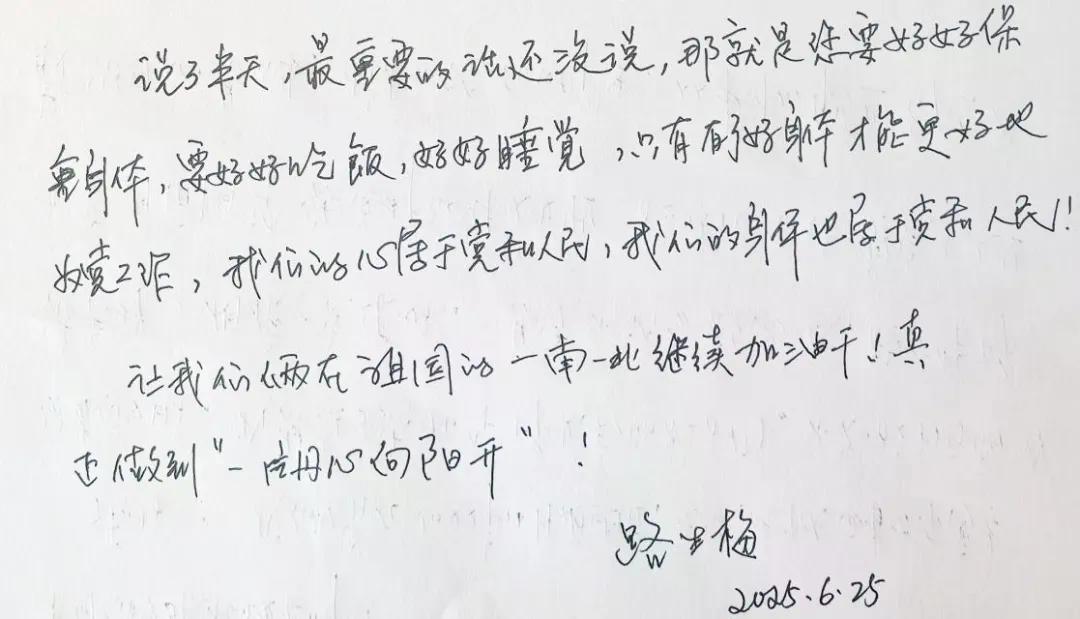 说了半天,最重要的话还没说,那就是您要好好保
重身体,要好好吃饭,好好睡觉,只有有了好身体才能更好地
工作,我们的心属于党和人民,我们的身体也属于党和人民!
让我们俩在祖国的一南一北继续加油干!真
正做到"一片丹心向阳开"!
路生梅
2025.6.25